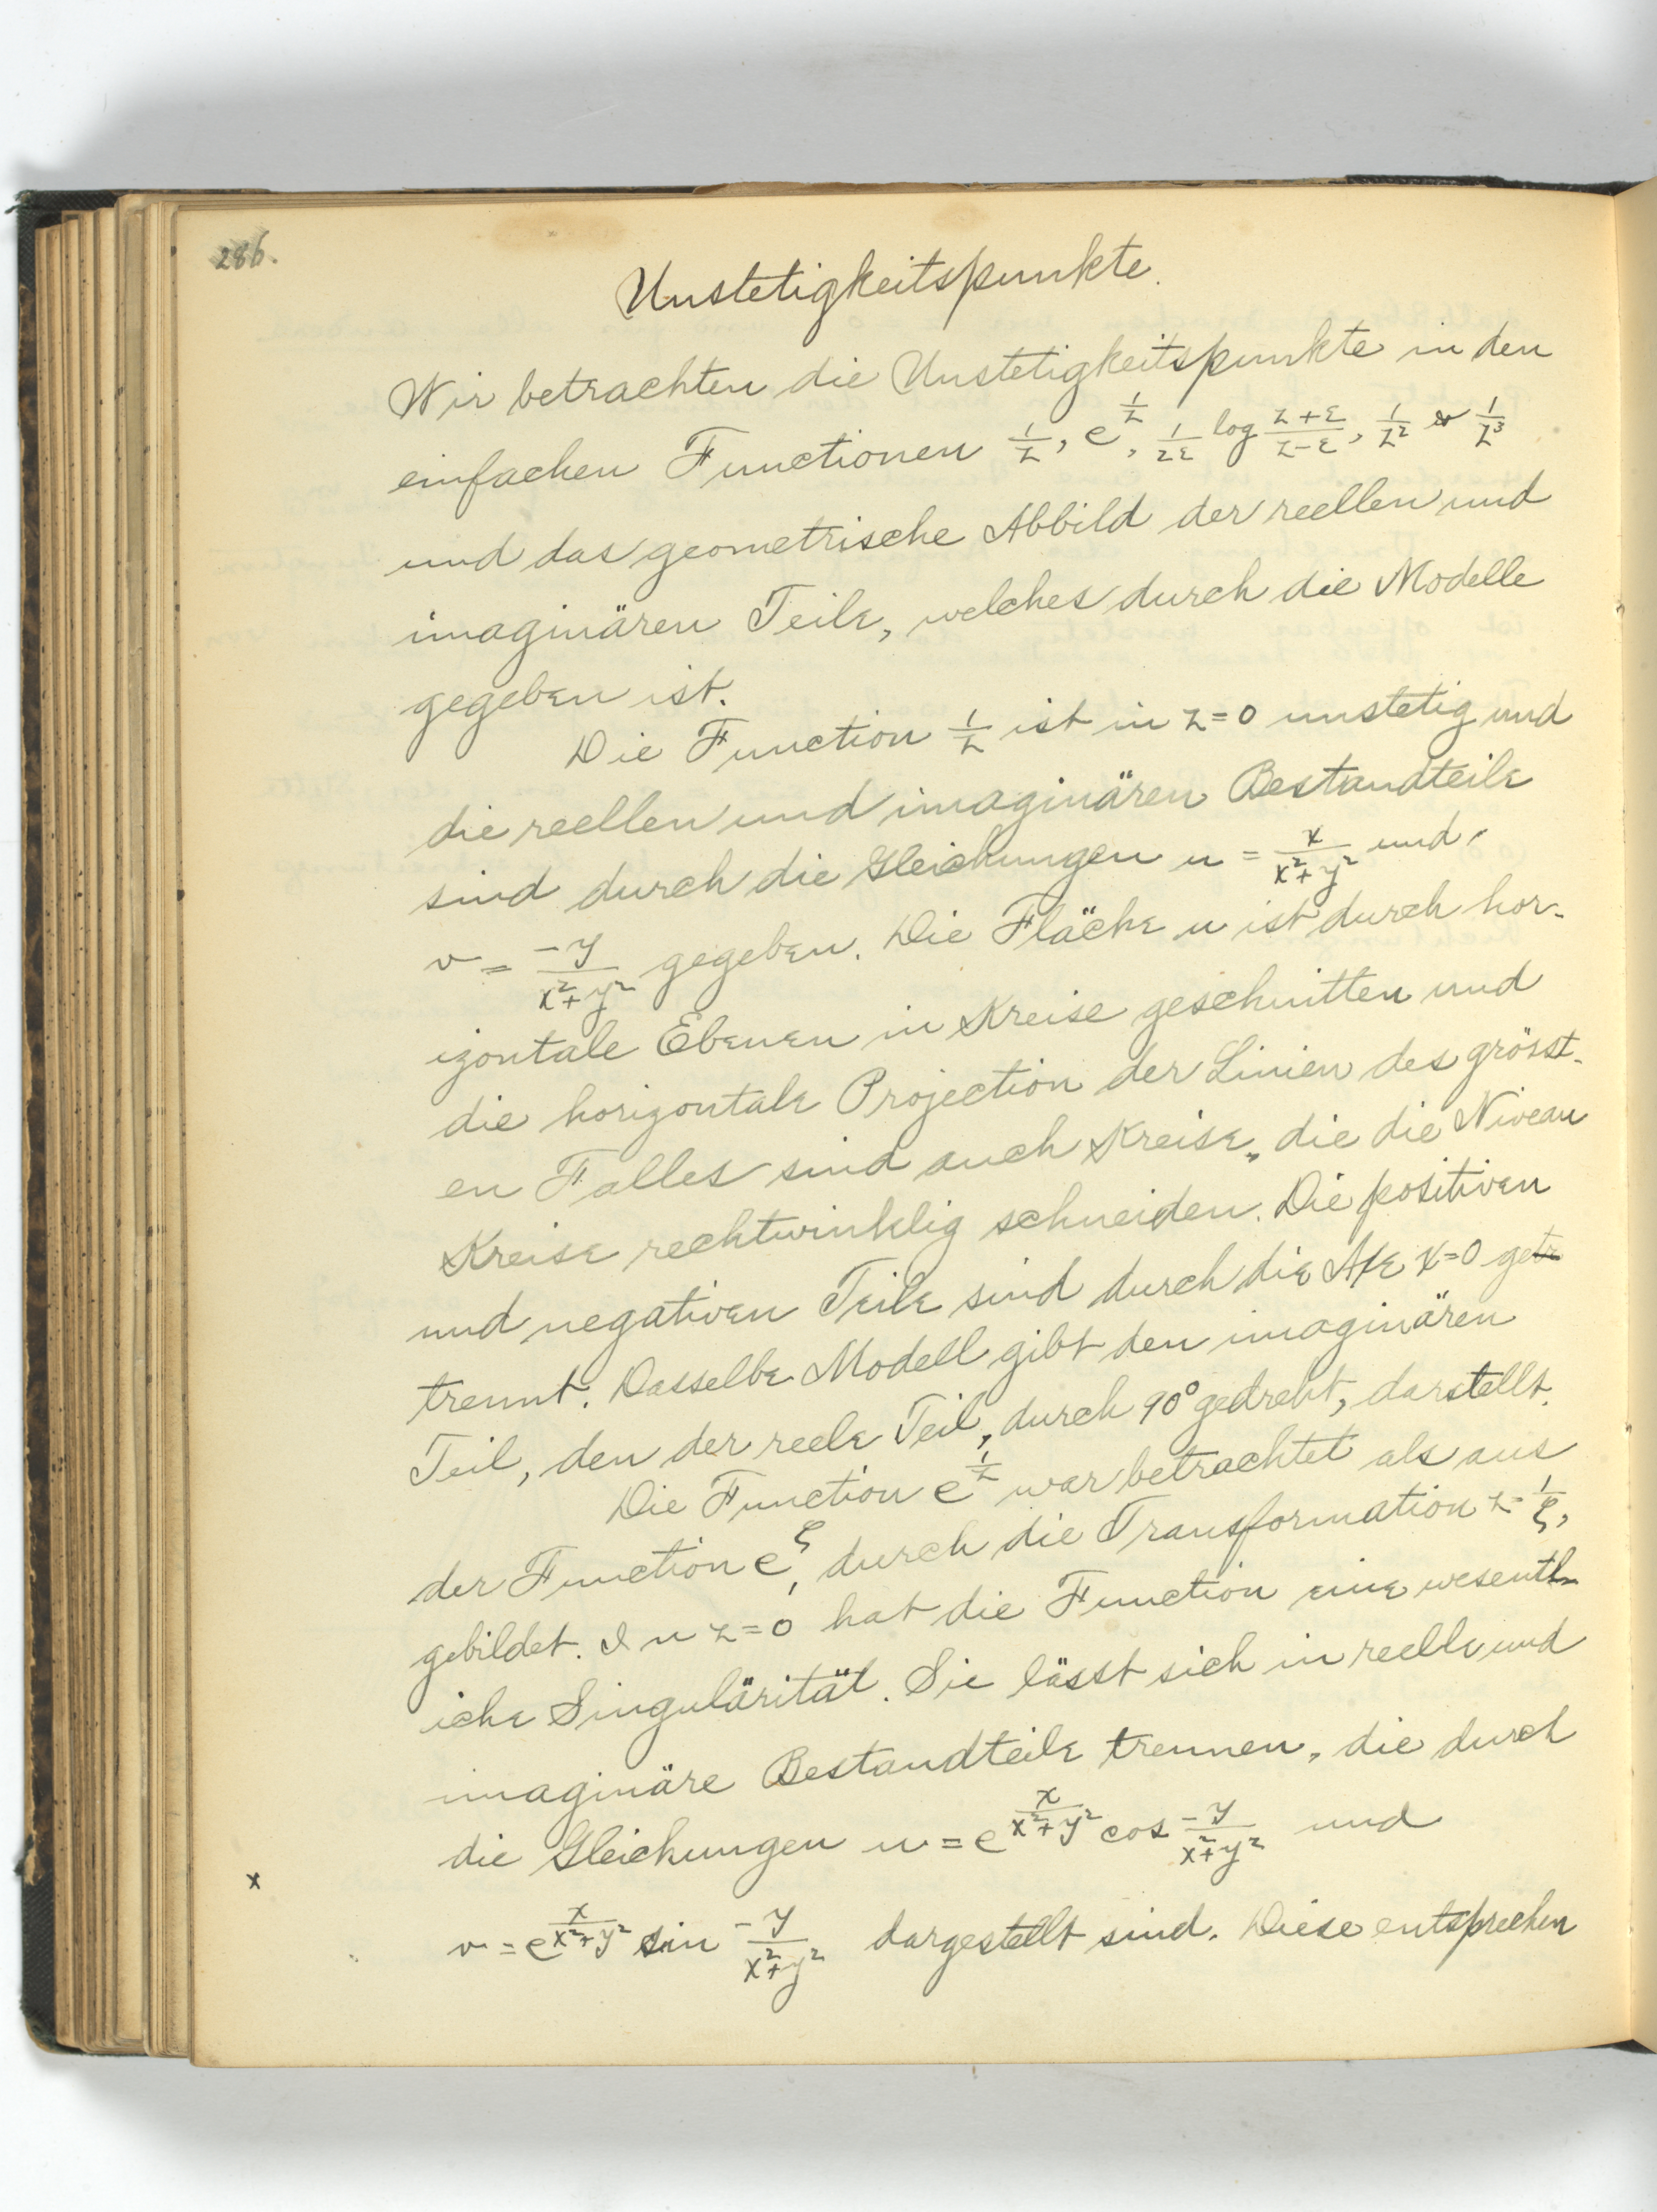 286.
Unstetigkeitspunkte.
Wir betrachten die Unstetigkeitspunkte in den
einfachen Functionen 1/z, e^(1/z), 1/2ε log (z+ε)/(z-ε), 1/z² & 1/z³
und das geometrische Abbild der reellen und
imaginären Teile, welches durch die Modelle
gegeben ist.
Die Function 1/z ist in z=0 unstetig und
die reellen und imaginären Bestandteile
sind durch die Gleichungen u = x/(x²+y²) und
v = -y/(x²+y²) gegeben. Die Fläche u ist durch hor-
izontale Ebenen in Kreise geschnitten und
die horizontale Projection der Linien des grösst-
en Falles sind auch Kreise, die die Niveau
Kreise rechtwinklig schneiden. Die positiven
und negativen Teile sind durch die Axe x=0 ge
trennt. Dasselbe Modell gibt den imaginären
Teil, den der reele Teil, durch 90° gedreht, darstellt.
Die Function e^(1/z) war betrachtet als aus
der Function e^ζ, durch die Transformation z = 1/ζ,
gebildet. In z=0 hat die Function eine wesentl-
iche Singulärität. Sie lässt sich in reelle und
imaginäre Bestandteile trennen, die durch
die Gleichungen u = e^(x/(x²+y²)) cos -y/(x²+y²) und
x
v = e^(x/(x²+y²)) sin -y/(x²+y²) dargestellt sind. Diese entsprechen